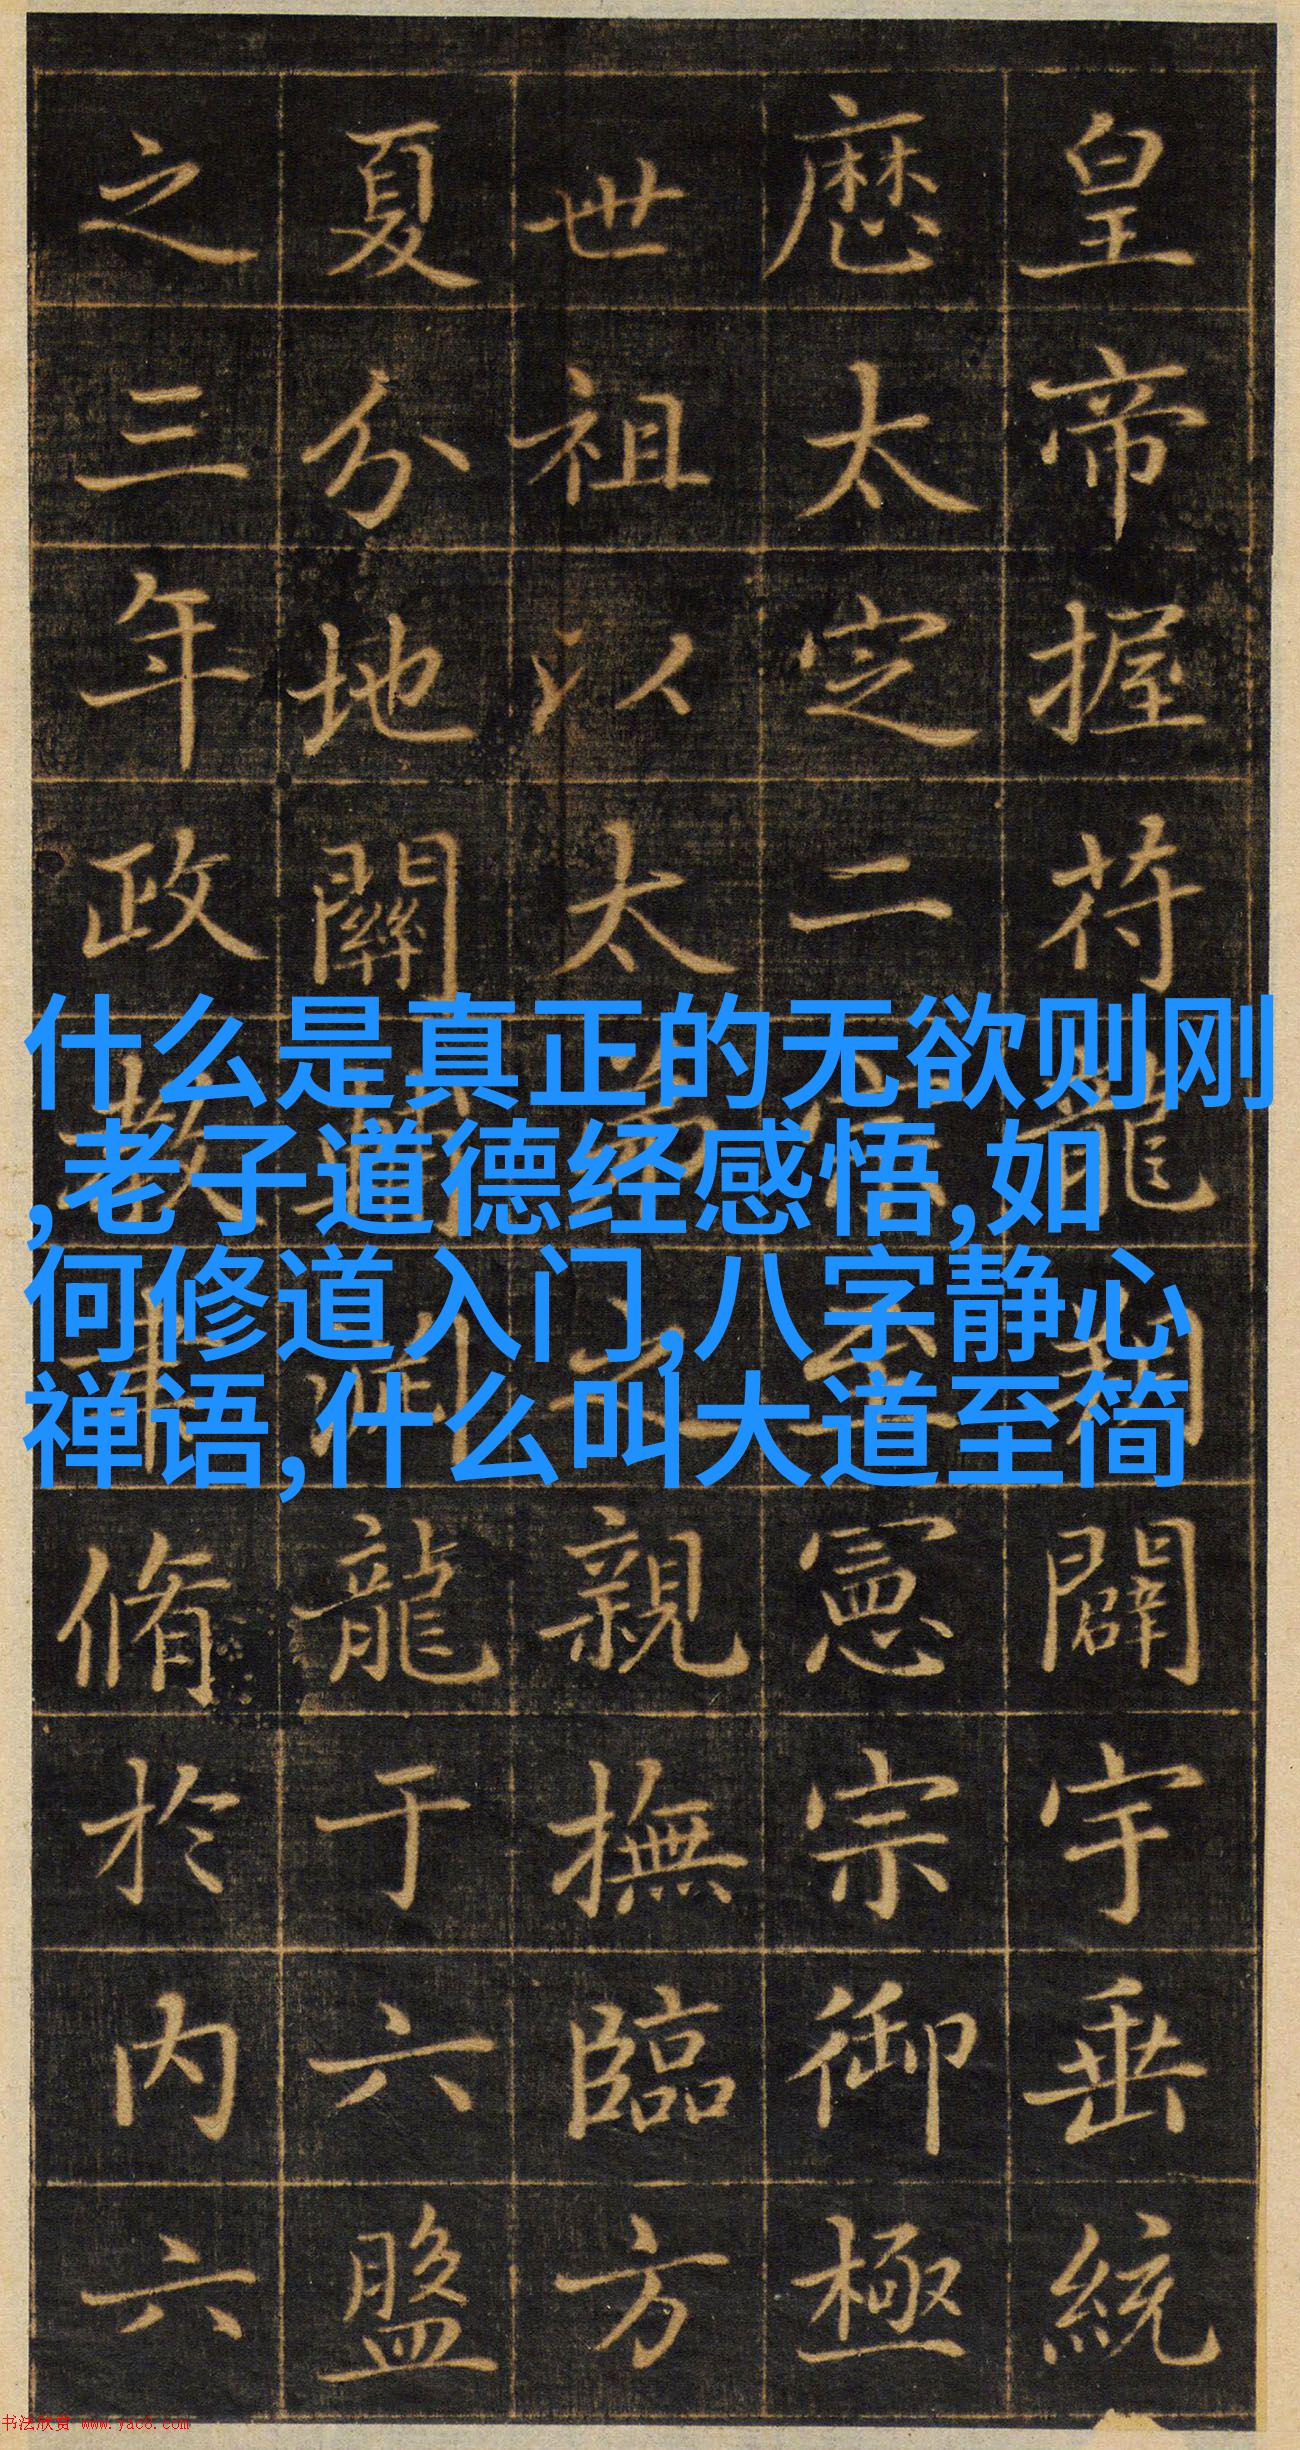 皇帝握符龍闢宇垂統
歷太定二至憲宗御極
世祖以太之親撫臨方
夏分地關龍于六盤
之三年政教脩於内六
什么是真正的无欲则刚
,老子道德经感悟,如
何修道入门,八字静心
禅语,什么叫大道至简
书法欣赏 www.yac8.com